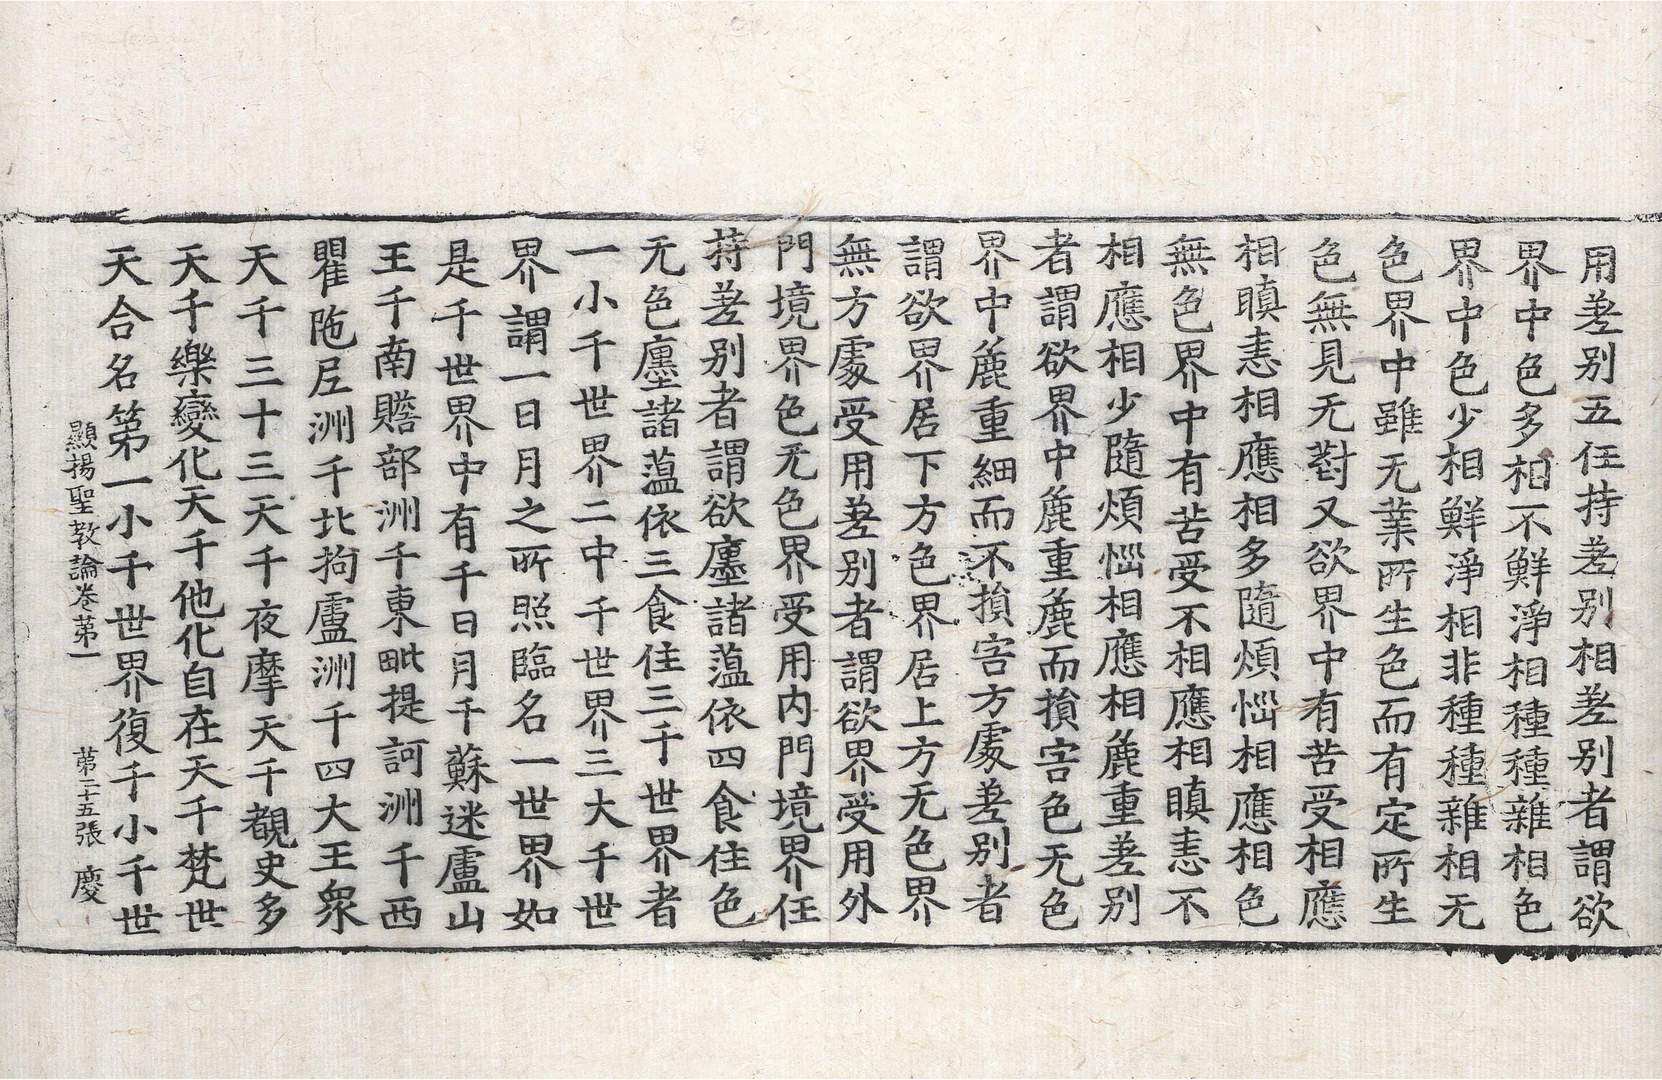 用差别五任持差别相差别者謂欲
界中色多相不鮮淨相種種雜相色
界中色少相鮮淨相非種種雜相无
色界中雖无業所生色而有定所生
色無見无對又欲界中有苦受相應
相瞋恚相應相多隨煩惱相應相色
無色界中有苦受不相應相瞋恚不
相應相少隨煩惱相應相麁重差别
者謂欲界中麁重麁而損害色无色
界中麁重細而不損害方處差别者
謂欲界居下方色界居上方无色界
無方處受用差别者謂欲界受用外
門境界色无色界受用內門境界任
持差别者謂欲廛諸蕰依四食住色
无色廛諸蕰依三食住三千世界者
一小千世界二中千世界三大千世
界謂一日月之所照臨名一世界如
是千世界中有千日月千蘇迷盧山
王千南贍部洲千東毗提訶洲千西
瞿陁尼洲千北拘盧洲千四大王衆
天千三十三天千夜摩天千覩史多
天千樂變化天千他化自在天千梵世
天合名第一小千世界復千小千世
顯揚聖教論卷第一 第二十五張 慶